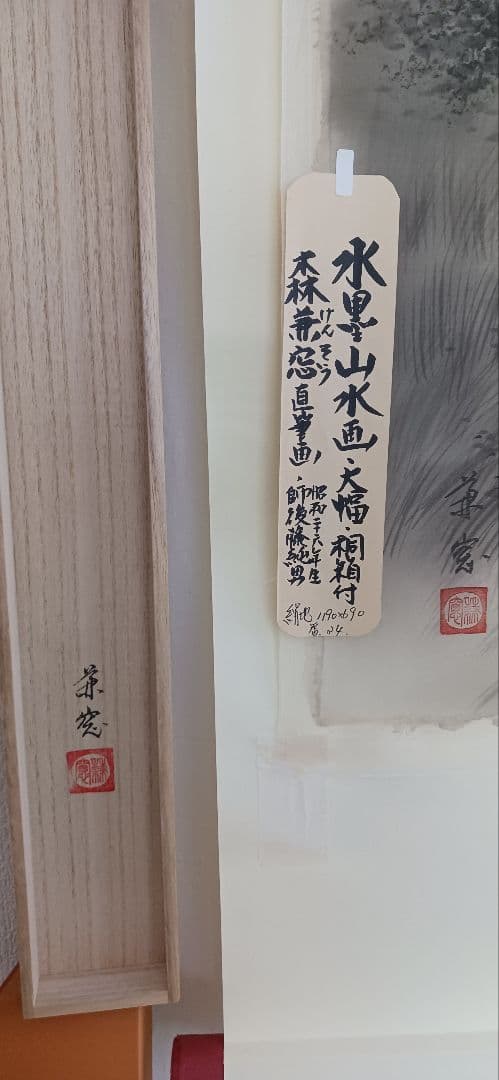 水墨山水画・大幅・桐箱付
森兼窓直筆画・師後藤純男
けんそう
昭和二十六年生
絹地 1190×690
兼窓
兼窓